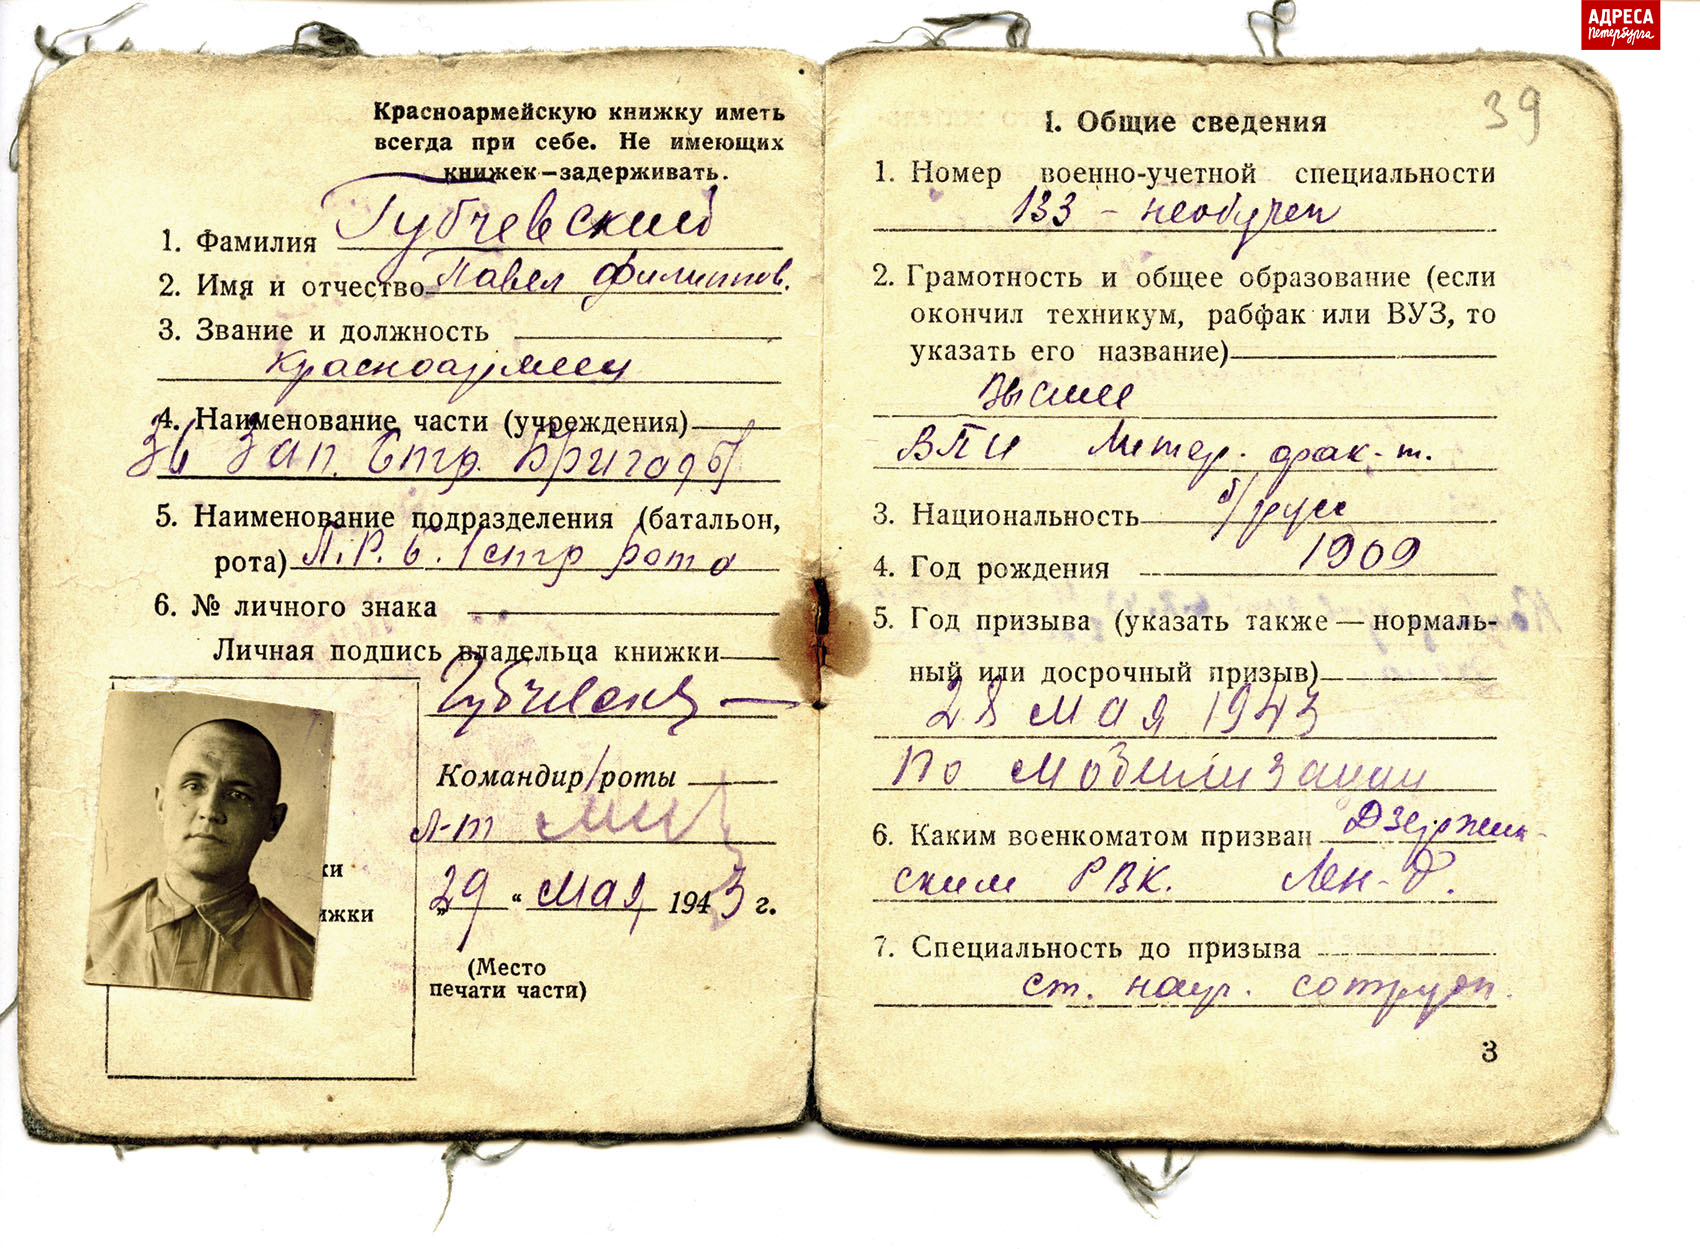 АДРЕСА
Петербурга
Красноармейскую книжку иметь
всегда при себе. Не имеющих
книжек—задерживать.
1. Фамилия Губчевский
2. Имя и отчество Павел Филиппов.
3. Звание и должность
красноармеец
4. Наименование части (учреждения)
36 Зап. Стр. Бригады
5. Наименование подразделения (батальон,
рота) П.Р.Б. 1 стр рота
6. № личного знака
Личная подпись владельца книжки
Губчевский
Командир роты
л-т
„29“ мая 1943 г.
(Место
печати части)
ки
ижки
39
I. Общие сведения
1. Номер военно-учетной специальности
133 - необучен
2. Грамотность и общее образование (если
окончил техникум, рабфак или ВУЗ, то
указать его название)
Высшее
ВПИ Литер. фак-т.
3. Национальность б/русс
4. Год рождения 1909
5. Год призыва (указать также — нормаль-
ный или досрочный призыв)
28 мая 1943
по мобилизации
6. Каким военкоматом призван Дзержин-
ским РВК. Лен-д.
7. Специальность до призыва
ст. науч. сотрудн.
3